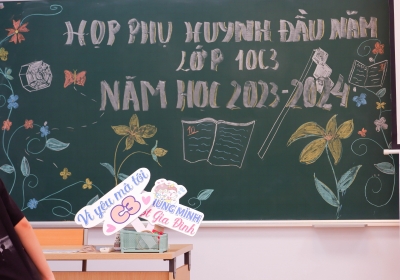 HỌP PHỤ HUYNH ĐẦU NĂM
LỚP 10C3
NĂM HỌC 2023-2024
Vì yêu mà tới
C3
CHUNG MÌNH
Gia Đình